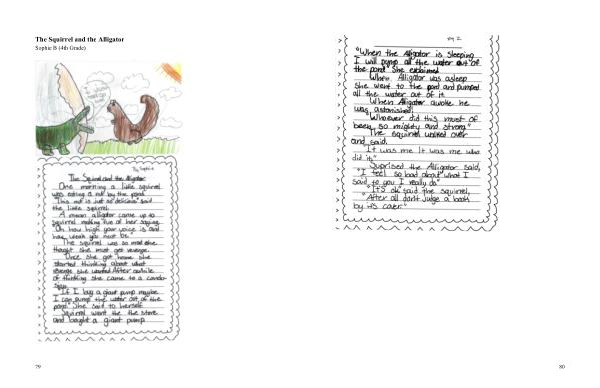 The Squirrel and the Alligator
Sophie B (4th Grade)
By Sophie
The Squirrel and the Alligator
One morning a little squirrel
was eating a nut by the pond.
"This nut is just so delicious" said
the little squirrel.
A mean alligator came up to
squirrel making fun of her saying
"Oh how high your voice is and
how weak you must be."
The squirrel was so mad she
thought she must get revenge.
Once she got home she
started thinking about what
revenge she wanted. After awhile
of thinking she came to a conclu-
sion.
"If I buy a giant pump maybe
I can pump the water out of the
pond." She said to herself.
Squirrel went the the store
and bought a giant pump
79
pg 2
"When the Alligator is sleeping
I will pump all the water out of
the pond" She exclaimed.
When Alligator was asleep
she went to the pond and pumped
all the water out of it.
When Alligator awoke he
was astonished.
"Whoever did this must of
been so mighty and strong"
The squirrel walked over
and said,
"It was me It was me who
did it."
Suprised the Alligator said,
"I feel so bad about what I
said to you I really do"
"It's ok" said the squirrel,
"After all don't judge a book
by its cover."
80